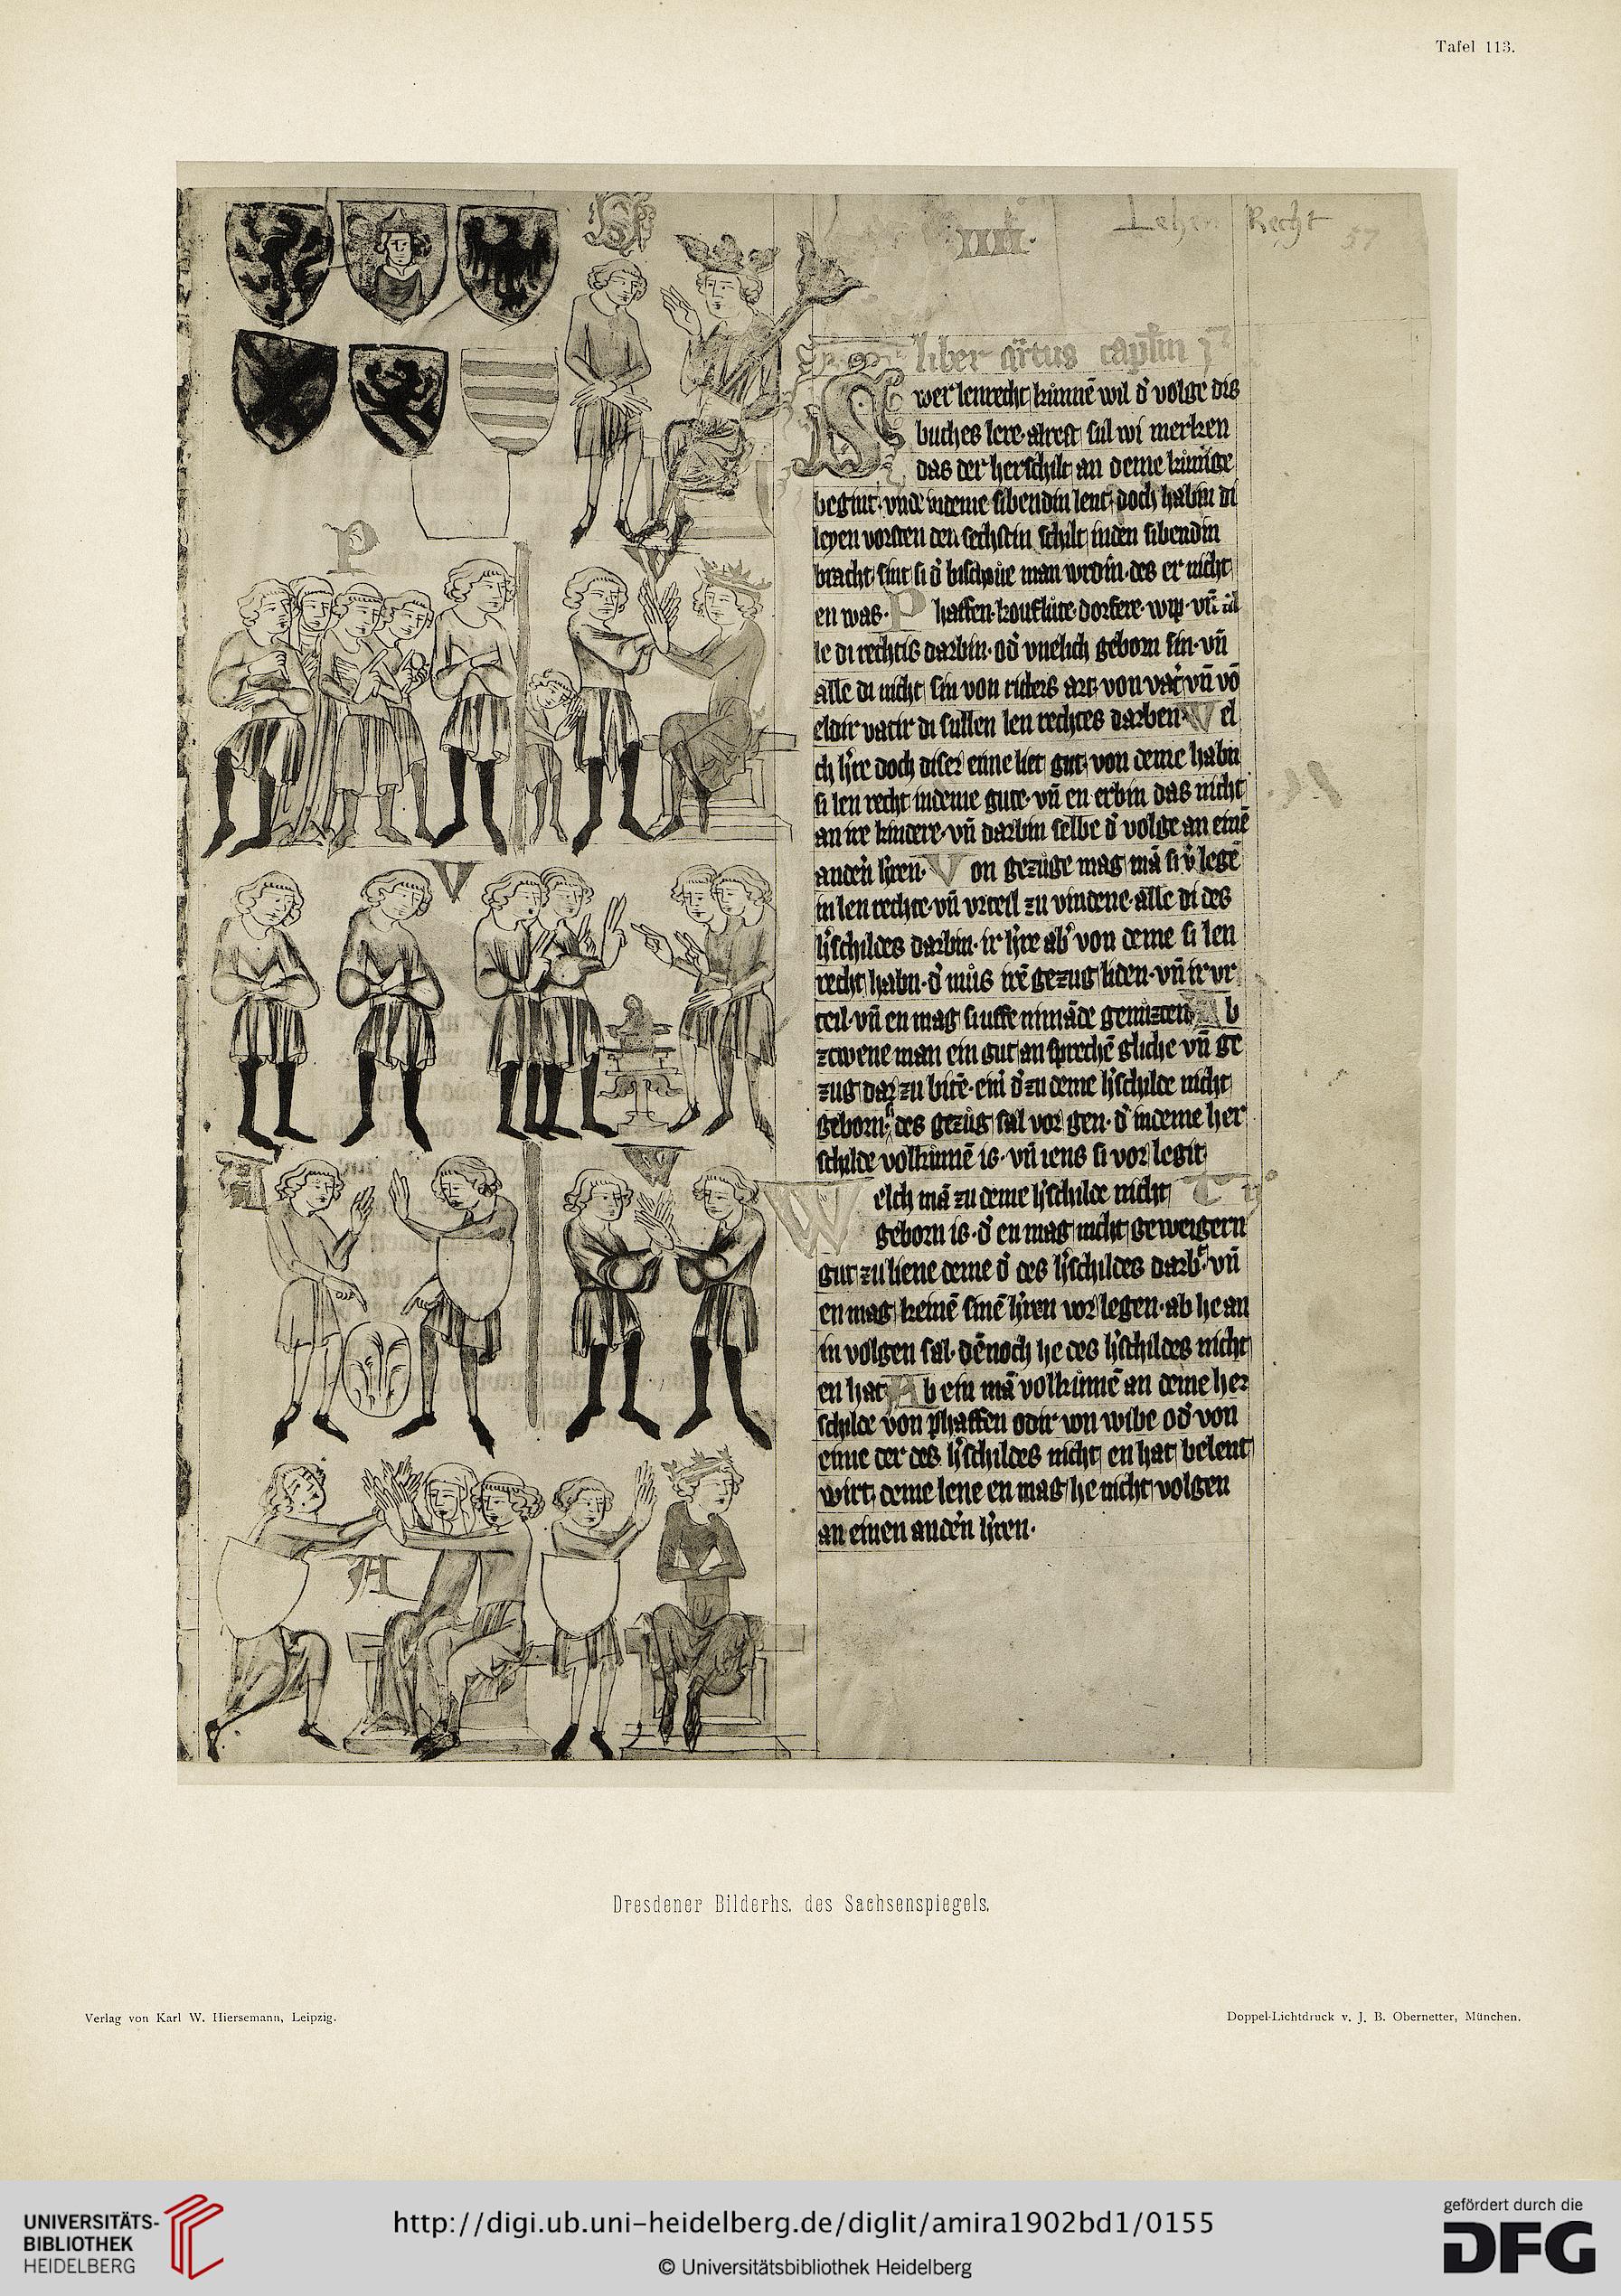 Tafel 113.
Lehen Recht 57
IIII.
liber q̄rtus cap̄lm
Swer lenrecht kůnnē wil d' volge dis
buches lere· alrest sul wi merken
das der herschilt an deme kůnige
begint· vnde indeme sibendin lent· doch habin di
leyen vorsten den sechstin schilt in den sibendin
bracht sint si d' bischoue man wrdin· des er nicht
en was· Phaffen· koufluͤte· dorfere· wip· vn̄ al
le di rechtis darbin· od' vnelich geborn sin· vn̄
alle di nicht sin von ritters art von vat' vn̄ vō
eldir vatir di sullen len rechtes darben· Wel
ch h're doch diser eime liet gut von deme habin
si len recht indeme gute· vn̄ en erbin das nicht
an ire kindere· vn̄ darbin selbe d' volge an eine
anden h'ren· Von gezůge mag mā si v'legē
in len rechte· vn̄ vrteil zu vindene· alle di des
h'schildes darbin· ir h're ab' von deme si len
recht habn· d' můs irē gezug liden· vn̄ ir vr
teil· vn̄ en mag si uffe nimāde genůtzen· Ab
zcwene man ein gut an sprechē gliche vn̄ ge
zug dar zu bitē· ein' d' zu deme h'schilde nicht
geborn· des gezůg sal vor gen· d' indeme her
schilde volkůmē is· vn̄ iens si vor legit
Welch mā zu deme h'schilde nicht
geborn is· d' en mag nicht geweigern
gut zu liene deme d' des h'schildes darbt· vn̄
en mag keinē sinē h'ren vor legen· ab he an
in volgen sal· dēnoch he des h'schildes nicht
en hat· Ab ein mā volkůmē an deme her
schilde von phaffen odir von wibe od' von
eime der des h'schildes nicht en hat belent
wirt· deme lene en mag he nicht volgen
an einen anden h'ren·
P
W
V
A
W
A
Dresdener Bilderhs. des Sachsenspiegels.
Verlag von Karl W. Hiersemann, Leipzig.
Doppel-Lichtdruck v. J. B. Obernetter, München.
UNIVERSITÄTS-
BIBLIOTHEK
HEIDELBERG
http://digi.ub.uni-heidelberg.de/diglit/amira1902bd1/0155
© Universitätsbibliothek Heidelberg
gefördert durch die
DFG